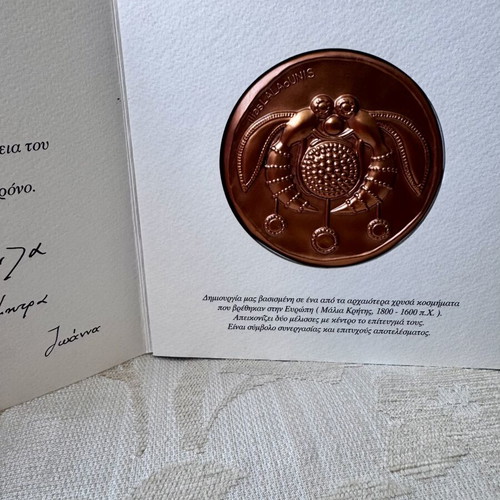 εια του
ρόνο.
Ιωάννα
ilias LALAoUNIS
Δημιουργία μας βασισμένη σε ένα από τα αρχαιότερα χρυσά κοσμήματα
που βρέθηκαν στην Ευρώπη ( Μάλια Κρήτης, 1800 - 1600 π.Χ. ).
Απεικονίζει δύο μέλισσες με κέντρο το επίτευγμά τους.
Είναι σύμβολο συνεργασίας και επιτυχούς αποτελέσματος.